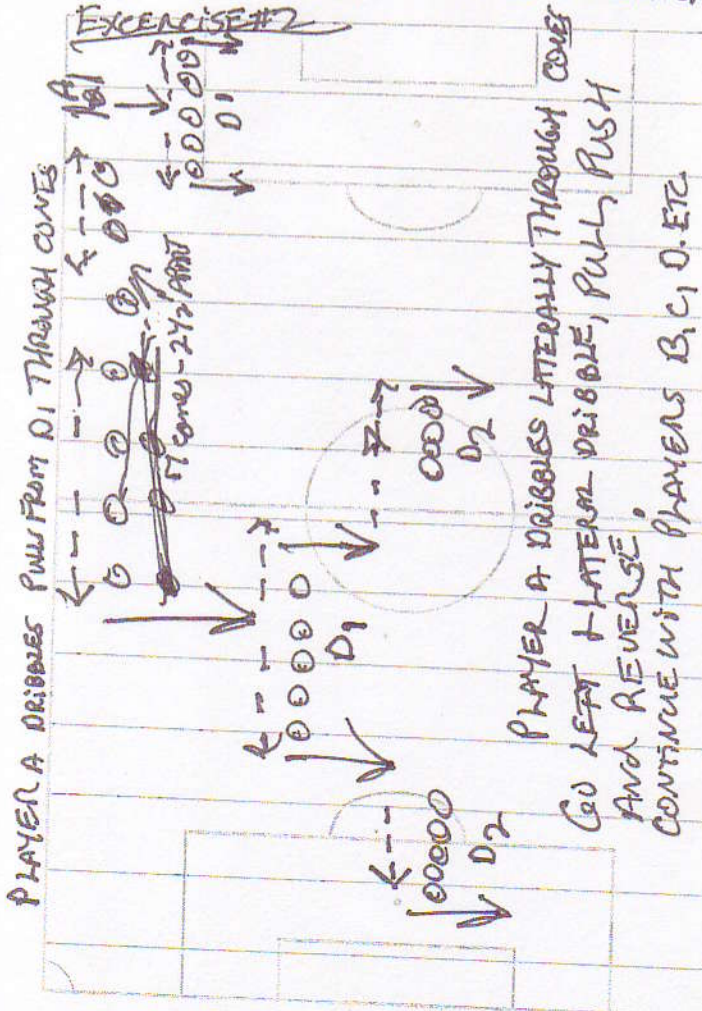 EXCERCISE #2
PLAYER A DRIBBLES PULLS FROM D1 THROUGH CONES
D1
D1
D2
D2
PLAYER A DRIBBLES LATERALLY THROUGH CONES
GO LEFT + LATERAL DRIBBLE, PULL, PUSH
AND REVERSE,
CONTINUE WITH PLAYERS B, C, D. ETC